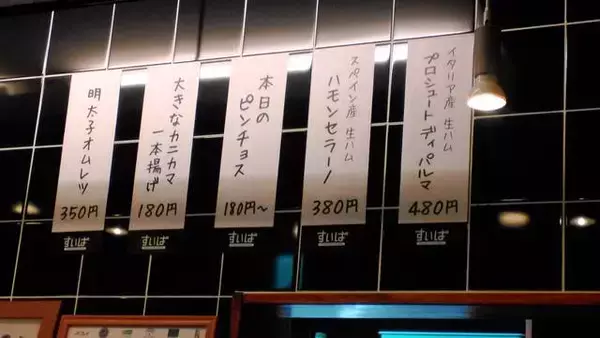 イタリア産 生ハム
プロシュートディパルマ
480円
すいば
スペイン産 生ハム
ハモンセラーノ
380円
すいば
本日の
ピンチョス
180円～
すいば
大きなカニカマ
一本揚げ
180円
すいば
明太子オムレツ
350円
すいば